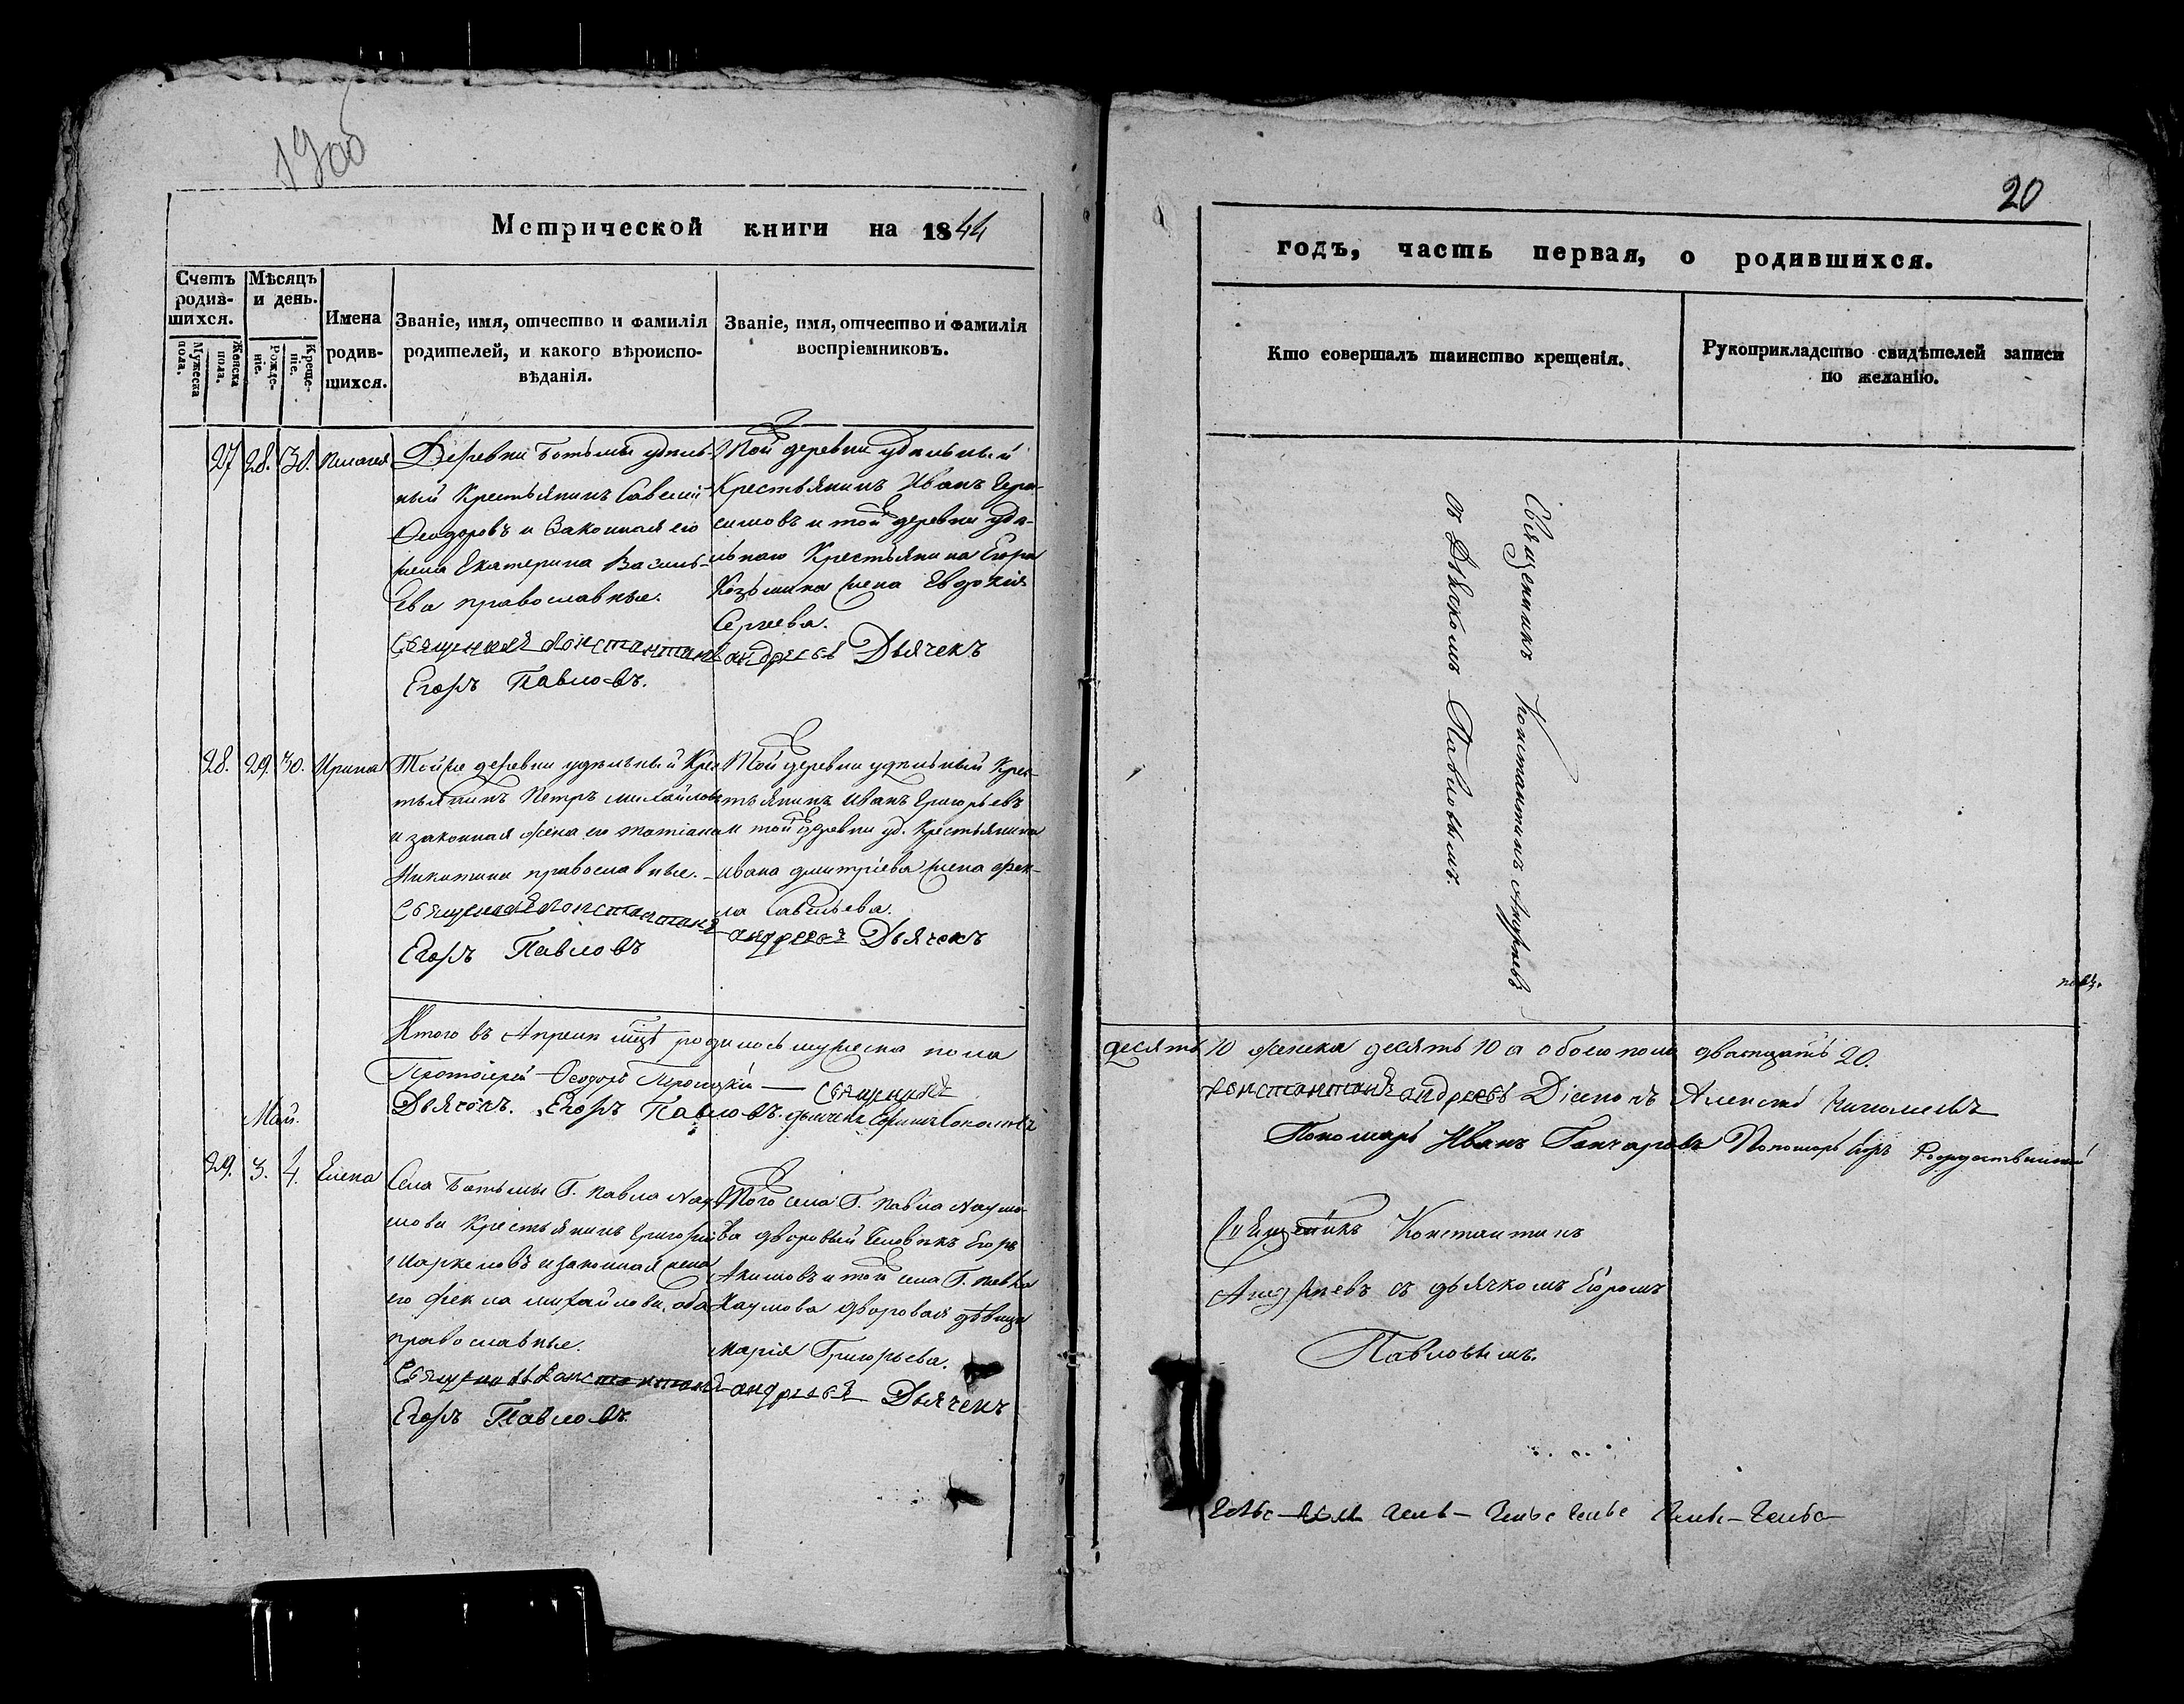 20
Метрической книги на 1844
годъ, часть первая, о родившихся.
Счетъ родив-шихся.
Мужеска пола.
Женска пола.
Мѣсяцъ и день.
Рожде-ніе.
Креще-ніе.
Имена родив-шихся.
Званіе, имя, отчество и фамилія
родителей, и какого вѣроиспо-
вѣданія.
Званіе, имя, отчество и фамилія
воспріемниковъ.
Кто совершалъ таинство крещенія.
Рукоприкладство свидѣтелей записи
по желанію.
27 28. 30.
Деревни Ботьмы удѣль-
ный Крестьянинъ Савелій
Ѳеодоровъ и Законная его
жена Екатерина Василь-
ева православные.
Священникъ Константинъ
Егоръ Павловъ.
Той деревни удѣльный
Крестьянинъ Иванъ Гера-
симовъ и той деревни удѣ-
льнаго Крестьянина Егора
Козьмина жена Евдокія
Сергеева.
Андреевъ Дьячекъ
Священникъ Константинъ Андреевъ
съ Дьячкомъ Павловымъ.
28. 29. 30. Ирина
Тойже деревни удѣльный Крес
тьянинъ Петръ Михайловъ
и законная жена его Татіана
Никитина православные.
Священникъ Константинъ
Егоръ Павловъ
Той деревни удѣльный Крес-
тьянинъ Иванъ Григорьевъ
и той деревни уд. Крестьянина
Ивана Дмитріева жена Ѳек-
ла Савельева.
Андреевъ Дьячекъ
Итого въ Апрелѣ мцѣ родилось мужеска пола
десять 10 женска десять 10 а обоего пола дватцать 20.
Протоіерей Ѳеодоръ
Священникъ
Константинъ Андреевъ Діаконъ Алексѣй Николаевъ
Дьячекъ. Егоръ Павловъ.
Пономарь Иванъ Гончаровъ Пономарь
Май.
29. 3. 4. Елена
Села Ботьмы Г. Павла Нау
мова Крестьянинъ Григорій
Маркеловъ и законная жена
его Ѳекла Михайлова, оба
православные.
Священникъ Константинъ
Егоръ Павловъ.
Того села Г. Павла Наумо
ва дворовый Человѣкъ Егоръ
Акимовъ и той села Г. Павла
Наумова дворовая дѣвица
Марія Григорьева.
Андреевъ Дьячекъ
Священникъ Константинъ
Андреевъ съ дьячкомъ Егоромъ
Павловымъ.